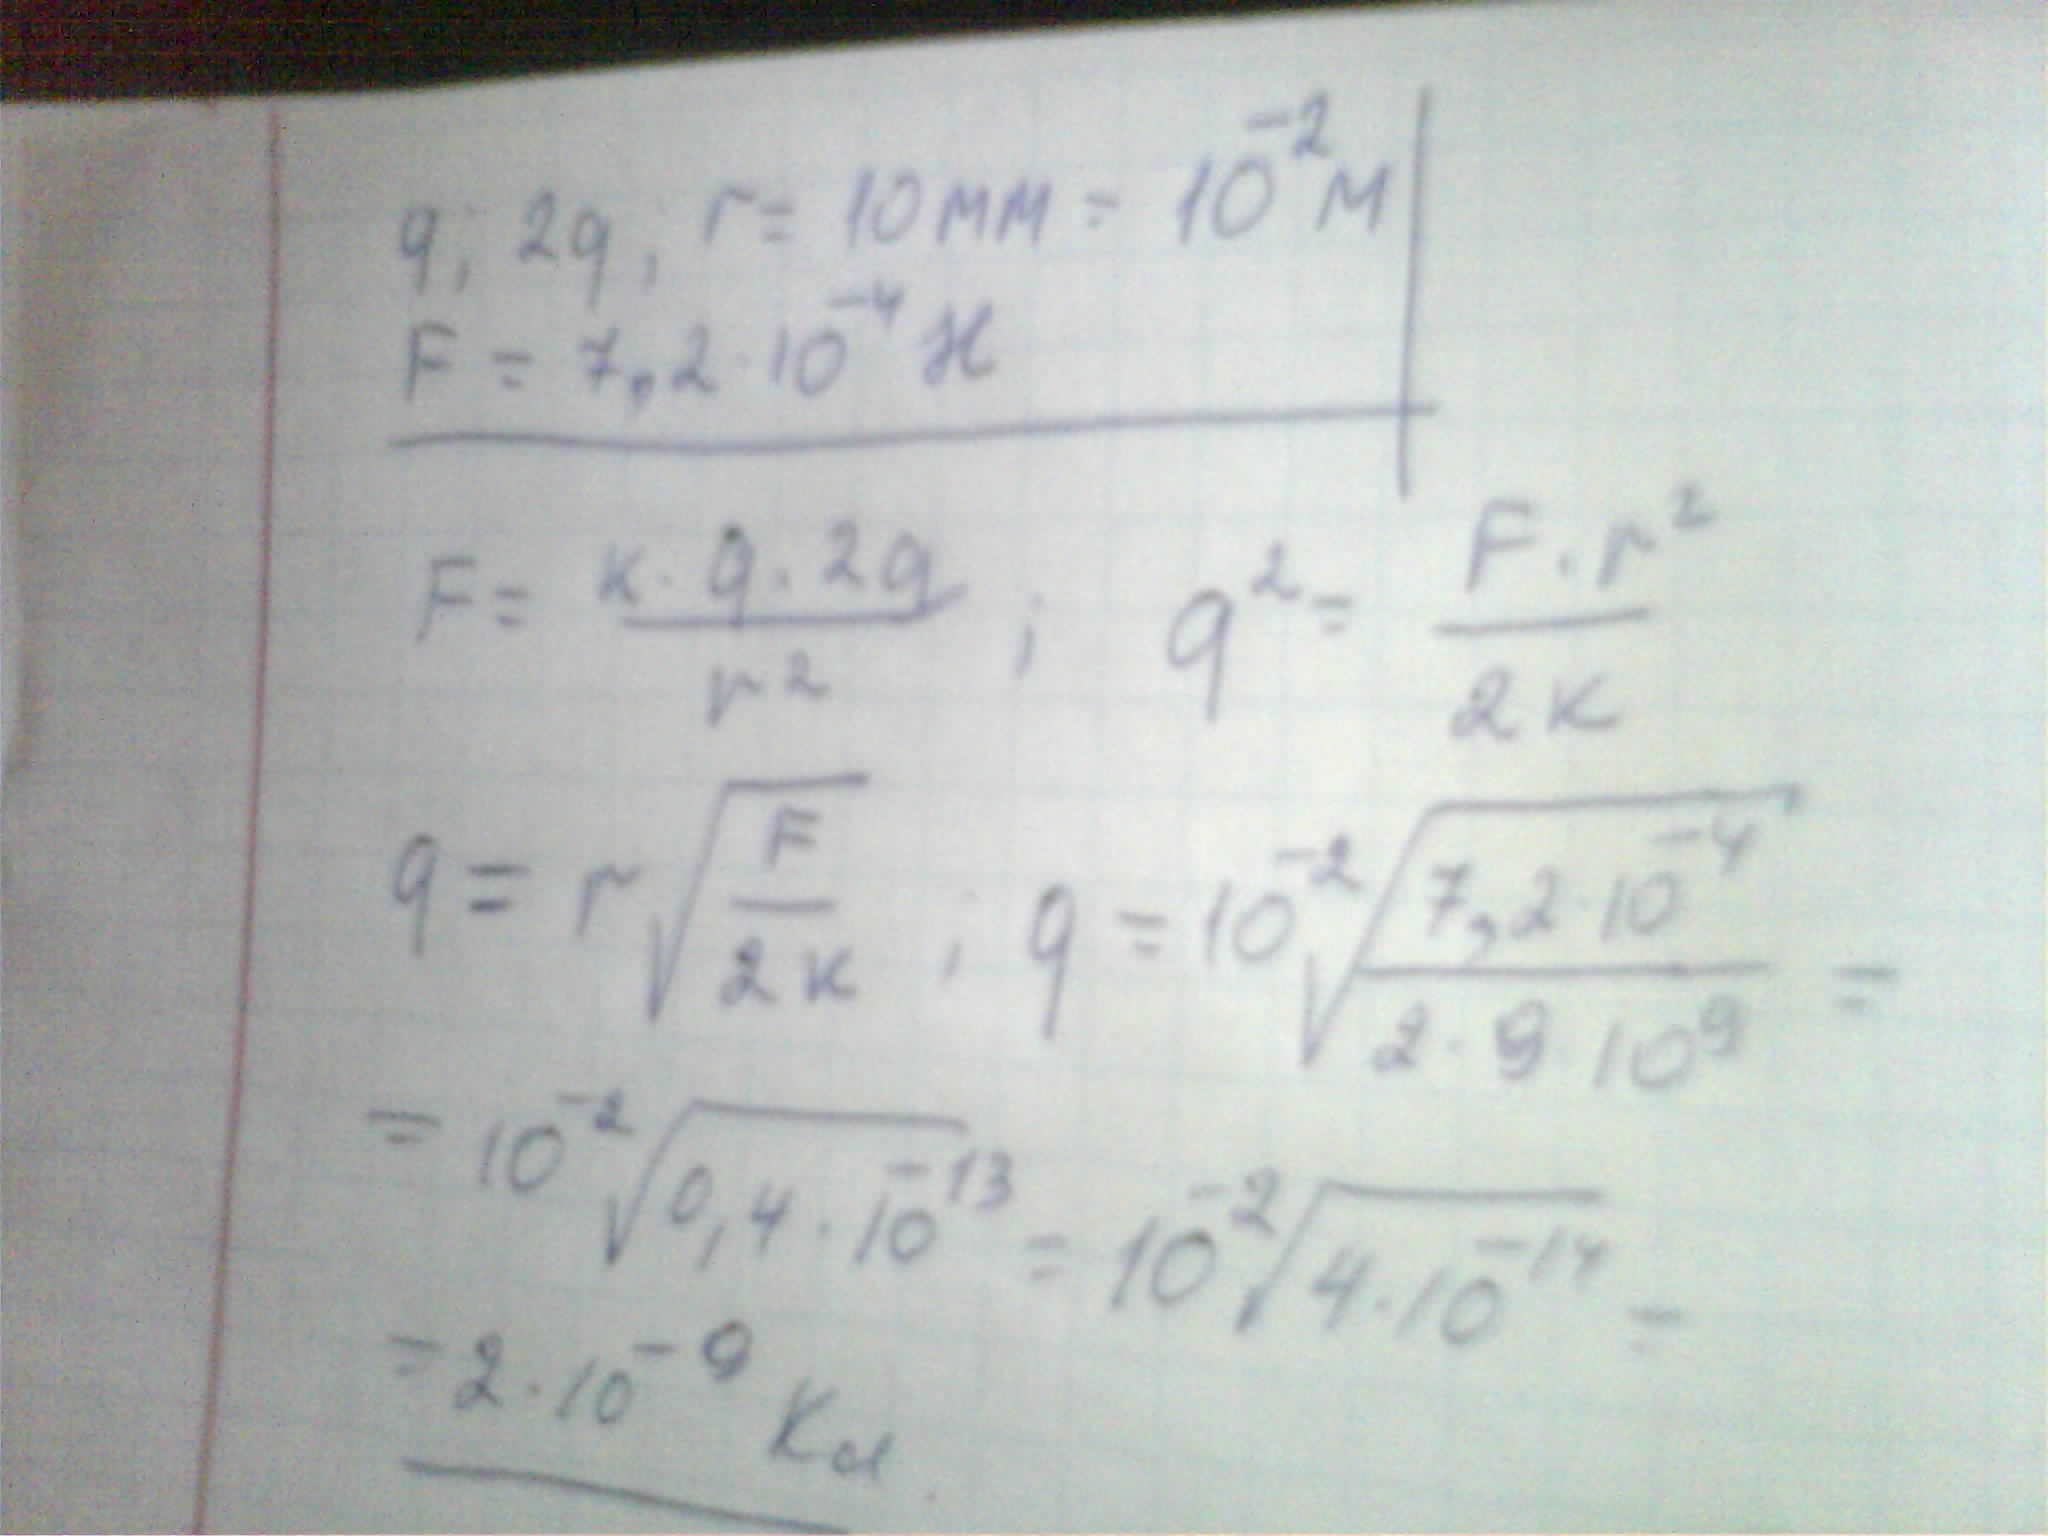 q; 2q; r = 10 мм = 10⁻² м
F = 7,2·10⁻⁴ Н
F = (к·q·2q)/r² ; q² = (F·r²)/(2к)
q = r√(F/(2к)) ; q = 10⁻²√((7,2·10⁻⁴)/(2·9·10⁹)) =
= 10⁻²√(0,4·10⁻¹³) = 10⁻²√(4·10⁻¹⁴) =
= 2·10⁻⁹ Кл.